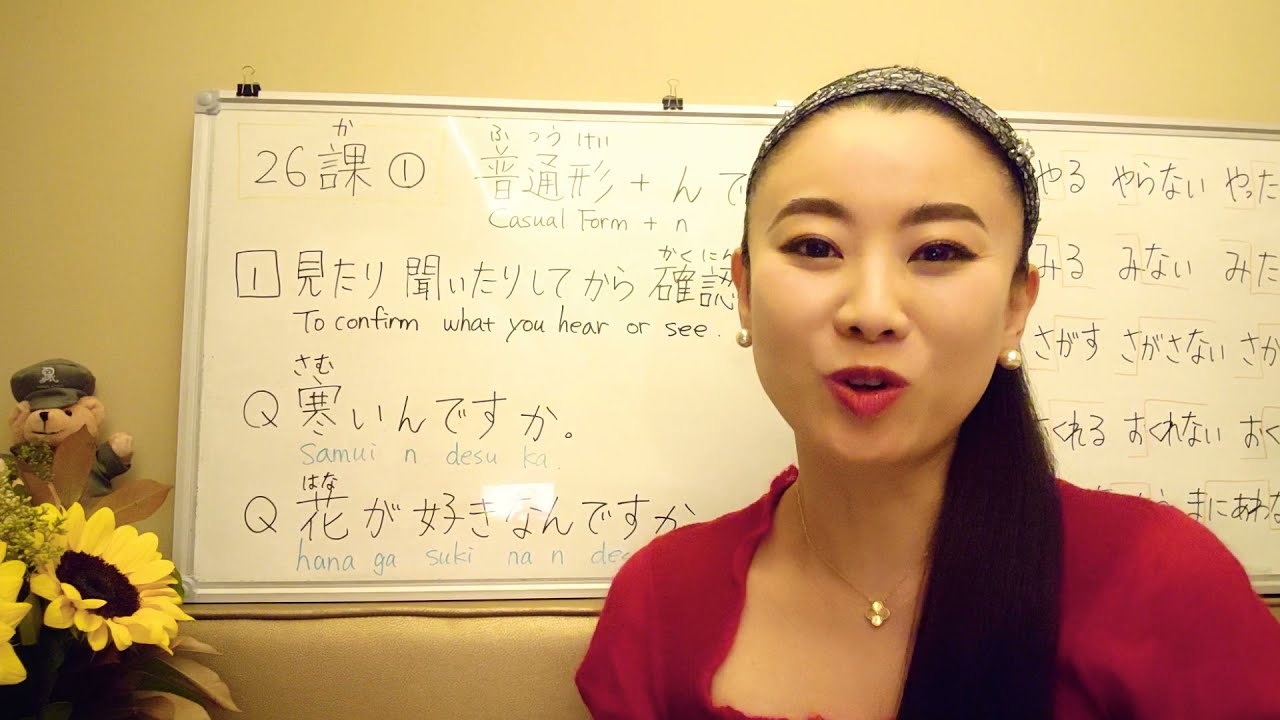 か
26課①
ふつうけい
普通形+んで
Casual Form + n
かくにん
1 見たり聞いたりしてから確認
To confirm what you hear or see.
さむ
Q 寒いんですか。
Samui n desu ka.
はな
Q 花が好きなんですか
hana ga suki na n de
やる やらない やった
みる みない みた
さがす さがさない さが
おくれる おくれない おく
まにあわな